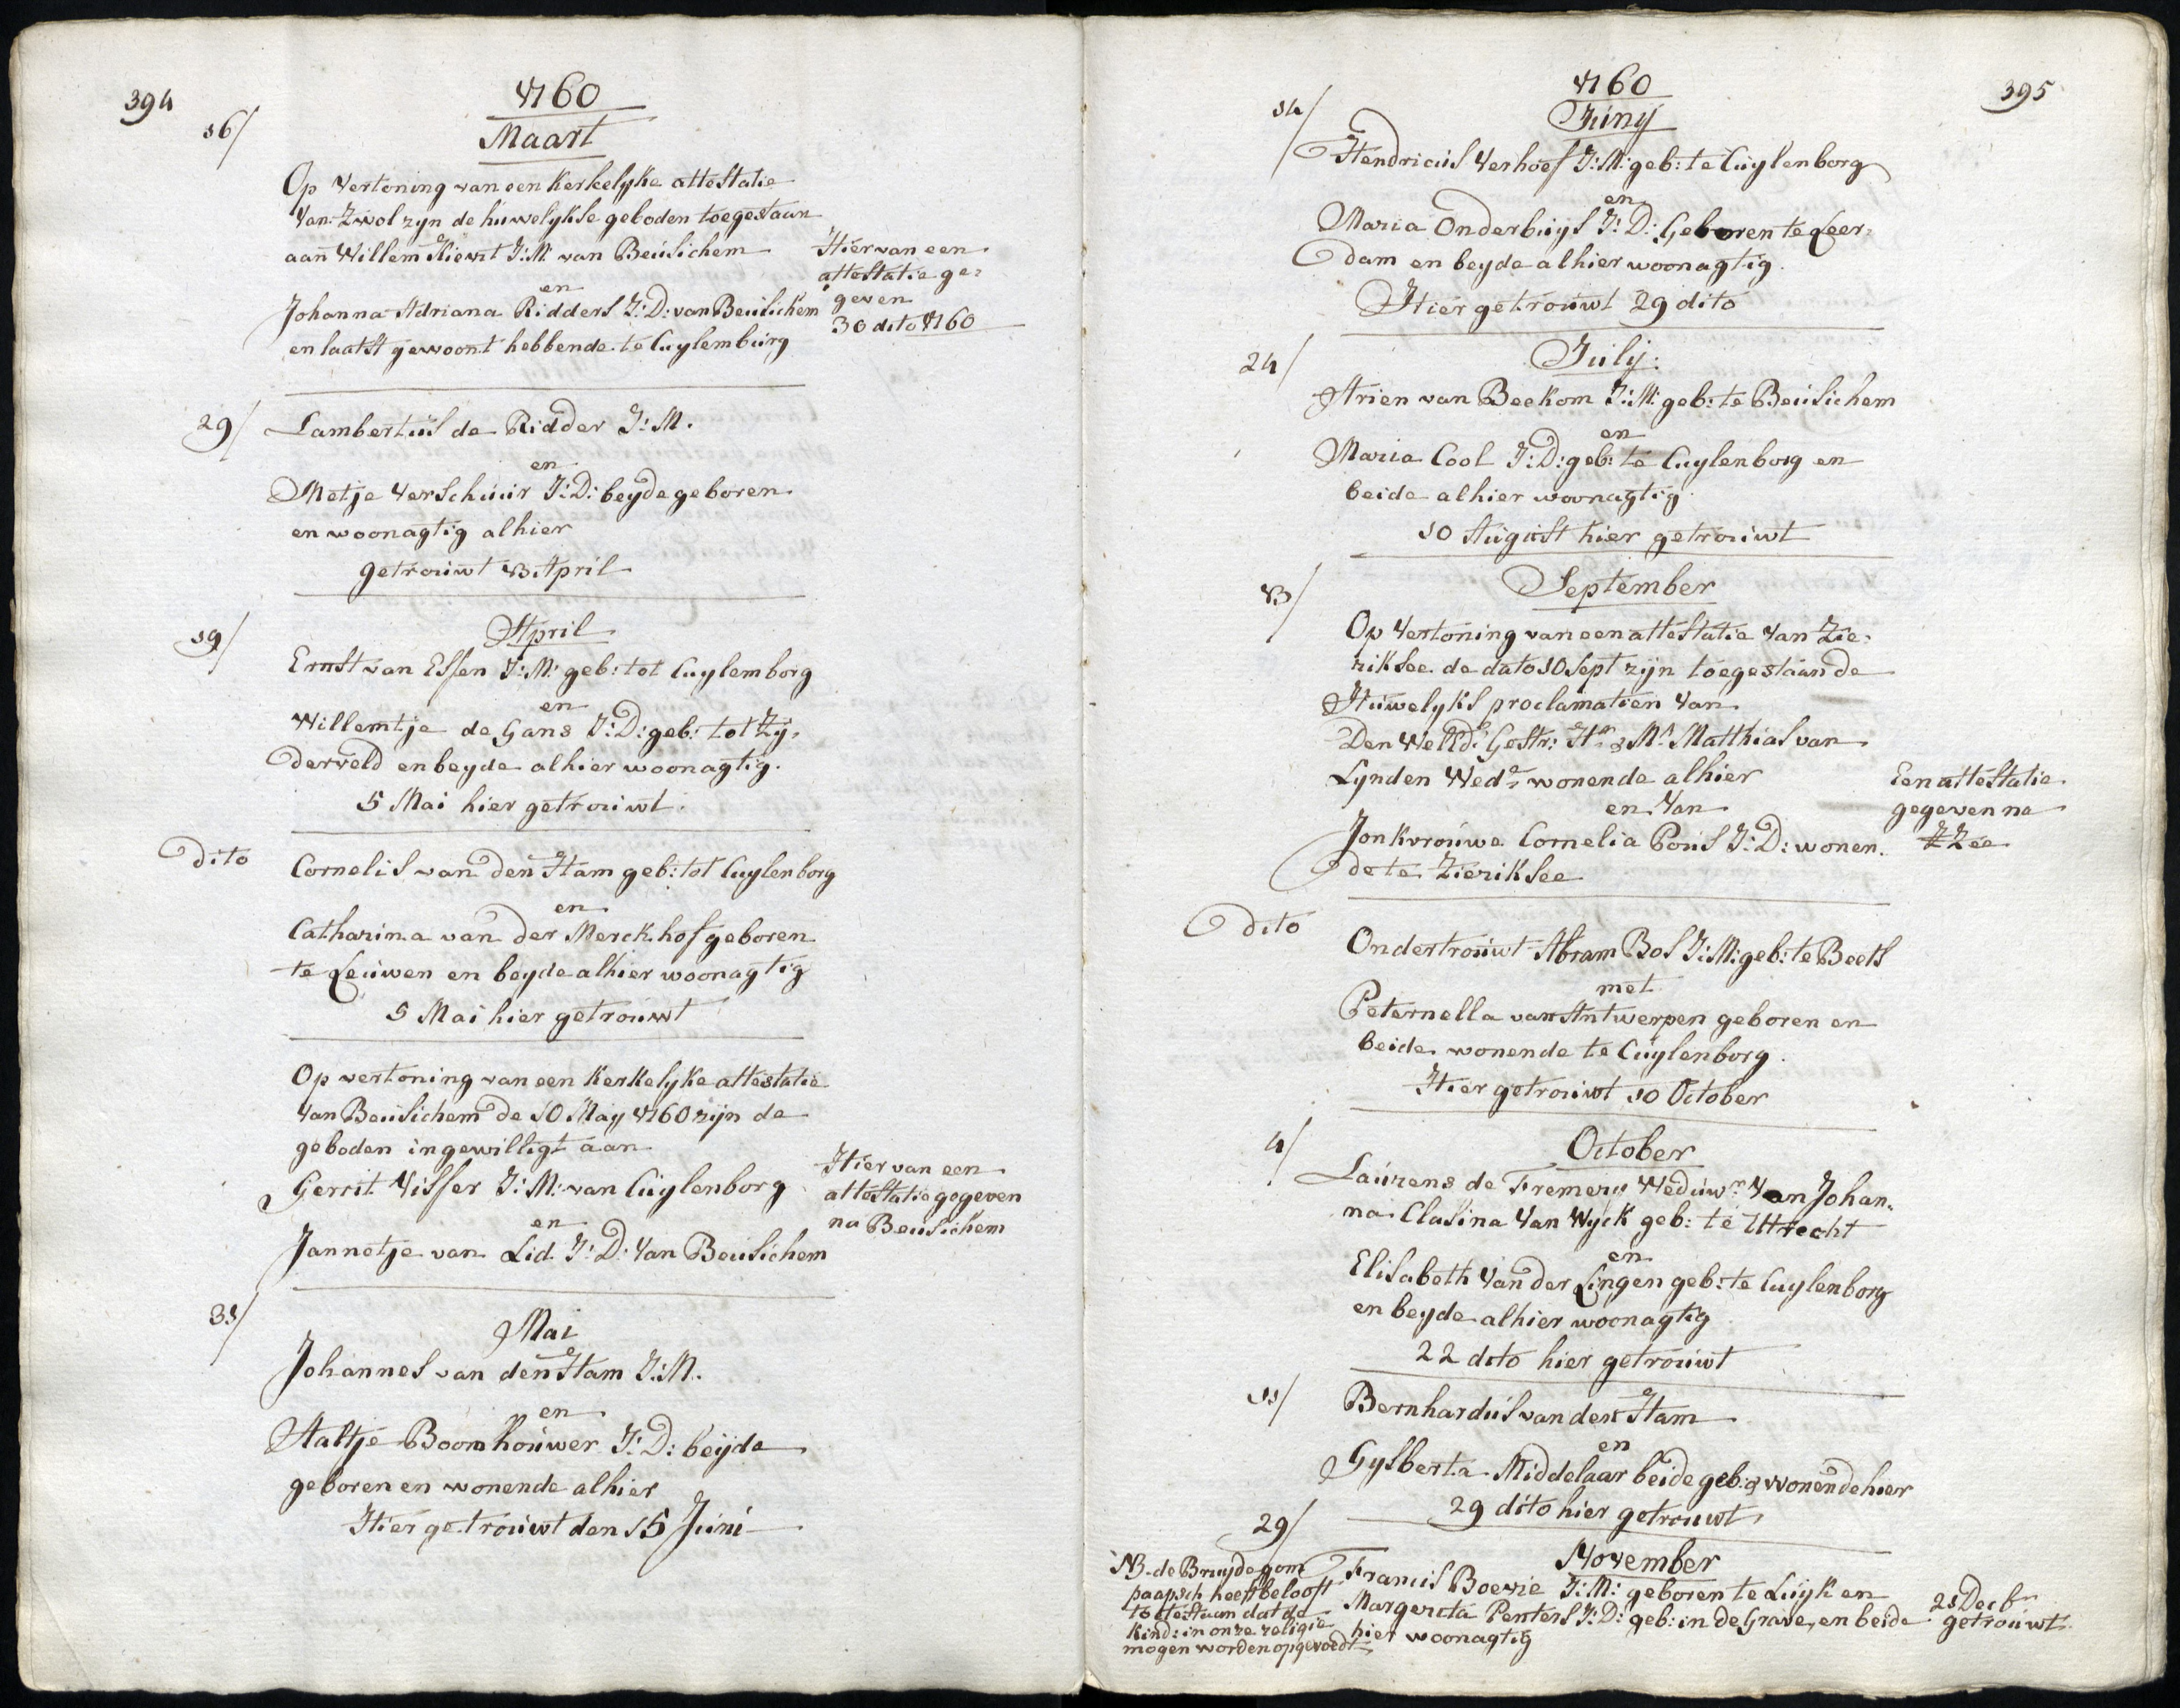 394
1760
Maart
16/
Op Vertoning van een Kerkelyke attestatie
Van Zwol zyn de huwelykse geboden toegestaan
aan Willem Kievit J:M: van Beusichem
en
Johanna Adriana Ridders J:D: van Beusichem
en laatst gewoont hebbende te Cuylemburg
Hier van een
attestatie ge-
geven
30 dito 1760
29/
Lambertus de Ridder J:M.
en
Metje Verschuur J:D: beyde geboren
en woonagtig alhier
getrouwt 13 April
April
19/
Ernst van Essen J:M: geb: tot Cuylemborg
en
Willemtje de Gans J:D: geb: tot Zy-
derveld en beyde alhier woonagtig.
5 Mai hier getrouwt.
dito
Cornelis van den Ham geb: tot Cuylenborg
en
Catharina van der Merckhof geboren
te Leuwen en beyde alhier woonagtig
5 Mai hier getrouwt
Op vertoning van een Kerkelyke attestatie
Van Beusichem de 10 May 1760 zijn de
geboden ingewilligt aan
Gerrit Visser J:M: van Cuylenborg
en
Jannetje van Lid J:D: Van Beusichem
Hier van een
attestatie gegeven
na Beusichem
31/
Mai
Johannes van den Ham J:M.
en
Aaltje Boomhouwer J:D: beijde
geboren en wonende alhier
Hier getrouwt den 15 Juni
395
1760
Juny
14/
Hendricus Verhoef J:M: geb: te Cuylenborg
en
Maria Onderbuys J:D: Geboren te Leer-
dam en beyde alhier woonagtig.
Hier getrouwt 29 dito
July.
24/
Arien van Beekom J:M: geb: te Beusichem
en
Maria Cool J:D: geb: te Cuylenborg en
beide alhier woonagtig.
10 August hier getrouwt
September
13/
Op Vertoning van een attestatie Van Zie-
riksee de dato 10 Sept zijn toegestaan de
Huwelyks proclamatien Van
Den WelEd: Gestr: Hr & Mr Matthias van
Lynden Wedr wonende alhier
en Van
Jonkvrouwe Cornelia Pous J:D: wonen-
de te Zieriksee
Een attestatie
gegeven na
ZZee
dito
Ondertrouwt Abram Bos J:M: geb: te Beets
met
Peternella van Antwerpen geboren en
beide wonende te Cuylenborg.
Hier getrouwt 10 October
October
4/
Laurens de Fremery Weduwr Van Johan-
na Clasina Van Wyck geb: te Uttrecht
en
Elisabeth Van der Lingen geb: te Cuylenborg
en beyde alhier woonagtig
22 dito hier getrouwt
11/
Bernhardus van den Ham
en
Gysberta Middelaar beide geb: & wonende hier
29 dito hier getrouwt
November
29/
Francis Boevie J:M: geboren te Luyk en
Margerita Penters J:D: geb: in de Grave, en beide
hier woonagtig
21 Decbr
getrouwt
NB. de Bruydegom
paapsch heeft belooft
toe te staan dat de
kind: in onze religie
mogen worden opgevoedt